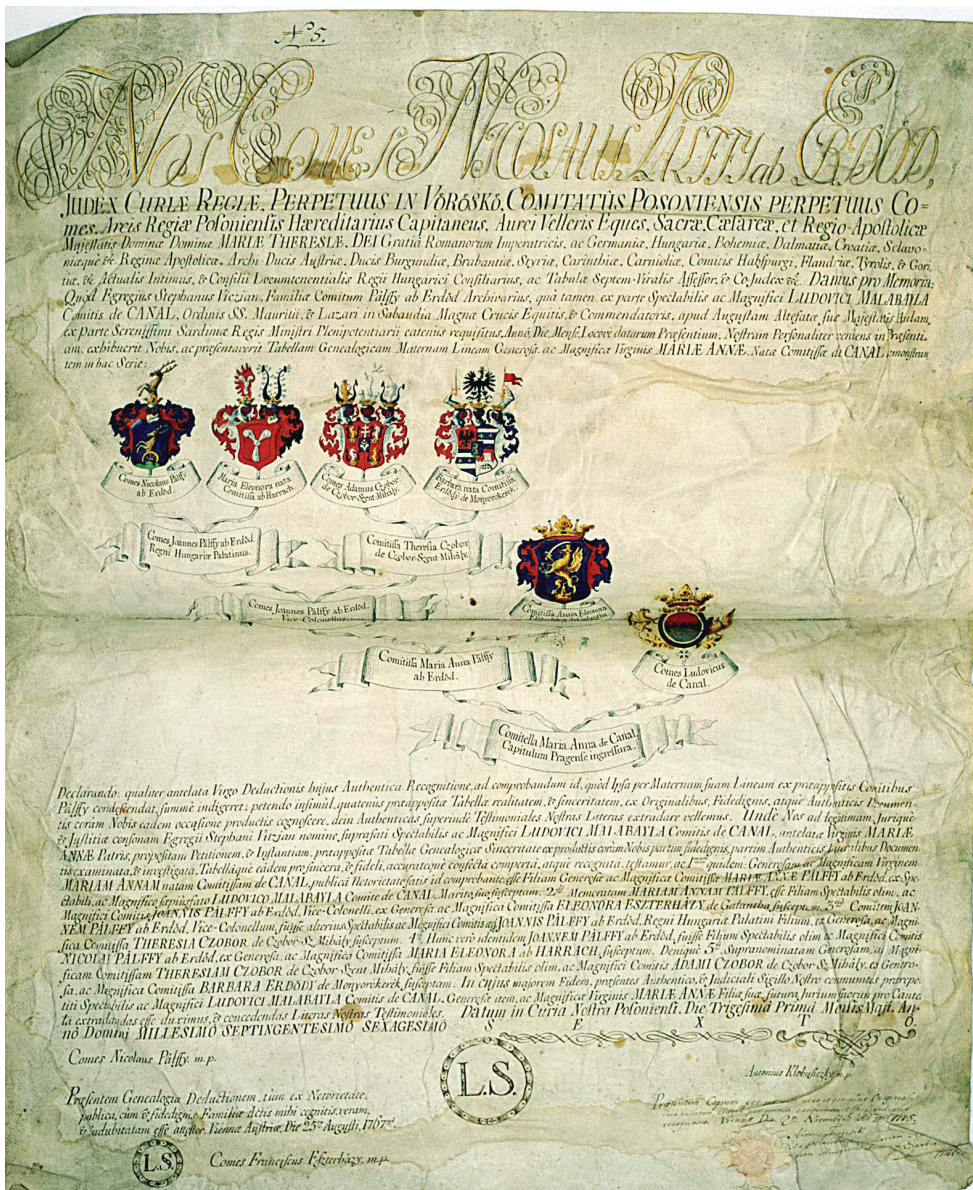 Nº 5.
NOS COMES NICOLAUS PÁLFFY ab ERDÖD,
JUDEX CURIÆ REGIÆ, PERPETUUS IN VÖRÖSKÖ, COMITATÛS POSONIENSIS PERPETUUS CO=
mes, Arcis Regiæ Posoniensis Hæreditarius Capitaneus, Aurei Velleris Eques, Sacræ, Cæsareæ, et Regio-Apostolicæ
Majestatis Dominæ Dominæ MARIÆ THERESIÆ, DEI Gratiâ Romanorum Imperatricis, ac Germaniæ, Hungariæ, Bohemiæ, Dalmatiæ, Croatiæ, Sclavo-
niæque &c Reginæ Apostolicæ, Archi Ducis Austriæ, Ducis Burgundiæ, Brabantiæ, Styriæ, Carinthiæ, Carnioliæ, Comitis Habspurgi, Flandriæ, Tyrolis, & Gori
tiæ, &c Actualis Intimus, & Consilii Locumtenentialis Regii Hungarici Consiliarius, ac Tabulæ Septem-Viralis Assessor, & Co-Judex &c. Damus pro Memoria:
Quod Egregius Stephanus Viczian, Familiæ Comitum Pálffy ab Erdöd Archivarius, quâ tamen ex parte Spectabilis ac Magnifici LUDOVICI MALABAYLA
Comitis de CANAL, Ordinis SS. Mauritii, & Lazari in Sabaudia Magnæ Crucis Equitis, & Commendatoris, apud Augustam Altefatæ suæ Majestatis Aulam,
ex parte Serenissimi Sardiniæ Regis Ministri Plenipotentiarii eatenus requisitus, Anno, Die, Mense, Locove datarum Præsentium, Nostram Personaliter veniens in Præsenti-
am, exhibuerit Nobis, ac præsentaverit Tabellam Genealogicam Maternam Lineam Generosæ, ac Magnificæ Virginis MARIÆ ANNÆ, Natæ Comitissæ de CANAL, demonstran
tem in hac Serie:
Comes Nicolaus Pálffy
ab Erdöd.
Maria Eleonora nata
Comitissa ab Harrach
Comes Adamus Czobor
de Czobor-Szent-Mihály.
Barbara nata Comitissa
Erdödy de Monyorókerék.
Comes Joannes Pálffy ab Erdöd.
Regni Hungariæ Palatinus.
Comitissa Theresia Czobor
de Czobor-Szent-Mihály.
Comes Joannes Pálffy ab Erdöd.
Vice-Colonellus.
Comitissa Anna Eleonora
Comitissa Maria Anna Pálffy
ab Erdöd.
Comes Ludovicus
de Canal.
Comitella Maria Anna de Canal.
Capitulum Pragense ingressura.
Declarando: qualiter antelata Virgo Deductionis hujus Authentica Recognitione, ad comprobandum id, quòd Ipsa per Maternam suam Lineam ex præappositis Comitibus
Pálffy condescendat, summè indigeret; petendo insimul, quatenus præappositæ Tabellæ realitatem, & sinceritatem, ex Originalibus, Fidedignis, atque Authenticis Documen-
tis coram Nobis eadem occasione productis cognoscere, dein Authenticas superinde Testimoniales Nostras Literas extradare vellemus. Unde Nos ad legitimam, Jurique
& Justitiæ consonam Egregii Stephani Vitzian nomine, suprafati Spectabilis ac Magnifici LUDOVICI MALABAYLA Comitis de CANAL, antelatæ Virginis MARIÆ
ANNÆ Patris, propositam Petitionem, & Instantiam, præappositæ Tabellæ Genealogicæ Sinceritate ex productis coram Nobis partim fidedignis, partim Authenticis Literalibus Documen-
tis examinata, & investigata, Tabellâque eâdem pro sincera, & fideli, accuratèque confectâ compertâ, atque recognitâ, testamur, ac 1mo quidem: Generosam ac Magnificam Virginem
MARIAM ANNAM natam Comitissam de CANAL, publicâ Notorietate satis id comprobante, esse Filiam Generosæ ac Magnificæ Comitissæ MARIÆ ANNÆ PÁLFFY ab ERDÖD, ex Spe-
ctabili, ac Magnifico sæpiusfato LUDOVICO MALABAYLA Comite de CANAL, Marito suo susceptam. 2do Memoratam MARIAM ANNAM PÁLFFY, esse Filiam Spectabilis olim, ac
Magnifici Comitis JOANNIS PÁLFFY ab Erdöd, Vice-Colonelli, ex Generosa, ac Magnifica Comitissa ELEONORA ESZTERHÁZY de Galantha susceptam. 3tio Comitem JOAN-
NEM PÁLFFY ab Erdöd, Vice-Colonellum, fuisse alterius Spectabilis ac Magnifici Comitis æquè JOANNIS PÁLFFY ab Erdöd, Regni Hungariæ Palatini Filium, ex Generosa, ac Magni-
fica Comitissa THERESIA CZOBOR de Czobor-Sz. Mihály susceptum. 4to Hunc verò identidem JOANNEM PÁLFFY ab Erdöd, fuisse Filium Spectabilis olim ac Magnifici Comitis
NICOLAI PÁLFFY ab Erdöd, ex Generosa, ac Magnifica Comitissa MARIA ELEONORA ab HARRACH susceptum. Denique 5to Supranominatam Generosam, ac Magni-
ficam Comitissam THERESIAM CZOBOR de Czobor-Szent Mihály, fuisse Filiam Spectabilis olim, ac Magnifici Comitis ADAMI CZOBOR de Czobor-Sz. Mihály, ex Genero-
sa, ac Magnifica Comitissa BARBARA ERDÖDY de Monyorókerék, susceptam. In cujus majorem Fidem, præsentes Authentico, & Judiciali Sigillo Nostro communitas præreper-
titi Spectabilis ac Magnifici LUDOVICI MALABAYLA Comitis de CANAL, Generosæ item, ac Magnificæ Virginis MARIÆ ANNÆ Filiæ suæ, futura Jurium suorum pro Caute-
la extradandas esse duximus, & concedendas Literas Nostras Testimoniales. Datum in Curia Nostra Posoniensi, Die Trigesima Prima Mensis Maji, An-
nô Domini MILLESIMÔ SEPTINGENTESIMÔ SEXAGESIMÔ S E X T Ô
Comes Nicolaus Pálffy. m.p.
L.S.
Antonius Klobusiczky m.p.
Præsentem Genealogiæ Deductionem, tum ex Notorietate
publica, cùm & fidedignis Familiæ Actis mihi cognitis, veram,
& indubitatam esse attestor. Viennæ Austriæ, Die 25ta Augusti, 1767mi
L.S.
Comes Franciscus Eszterházy. m.p.
Præsentem Copiam